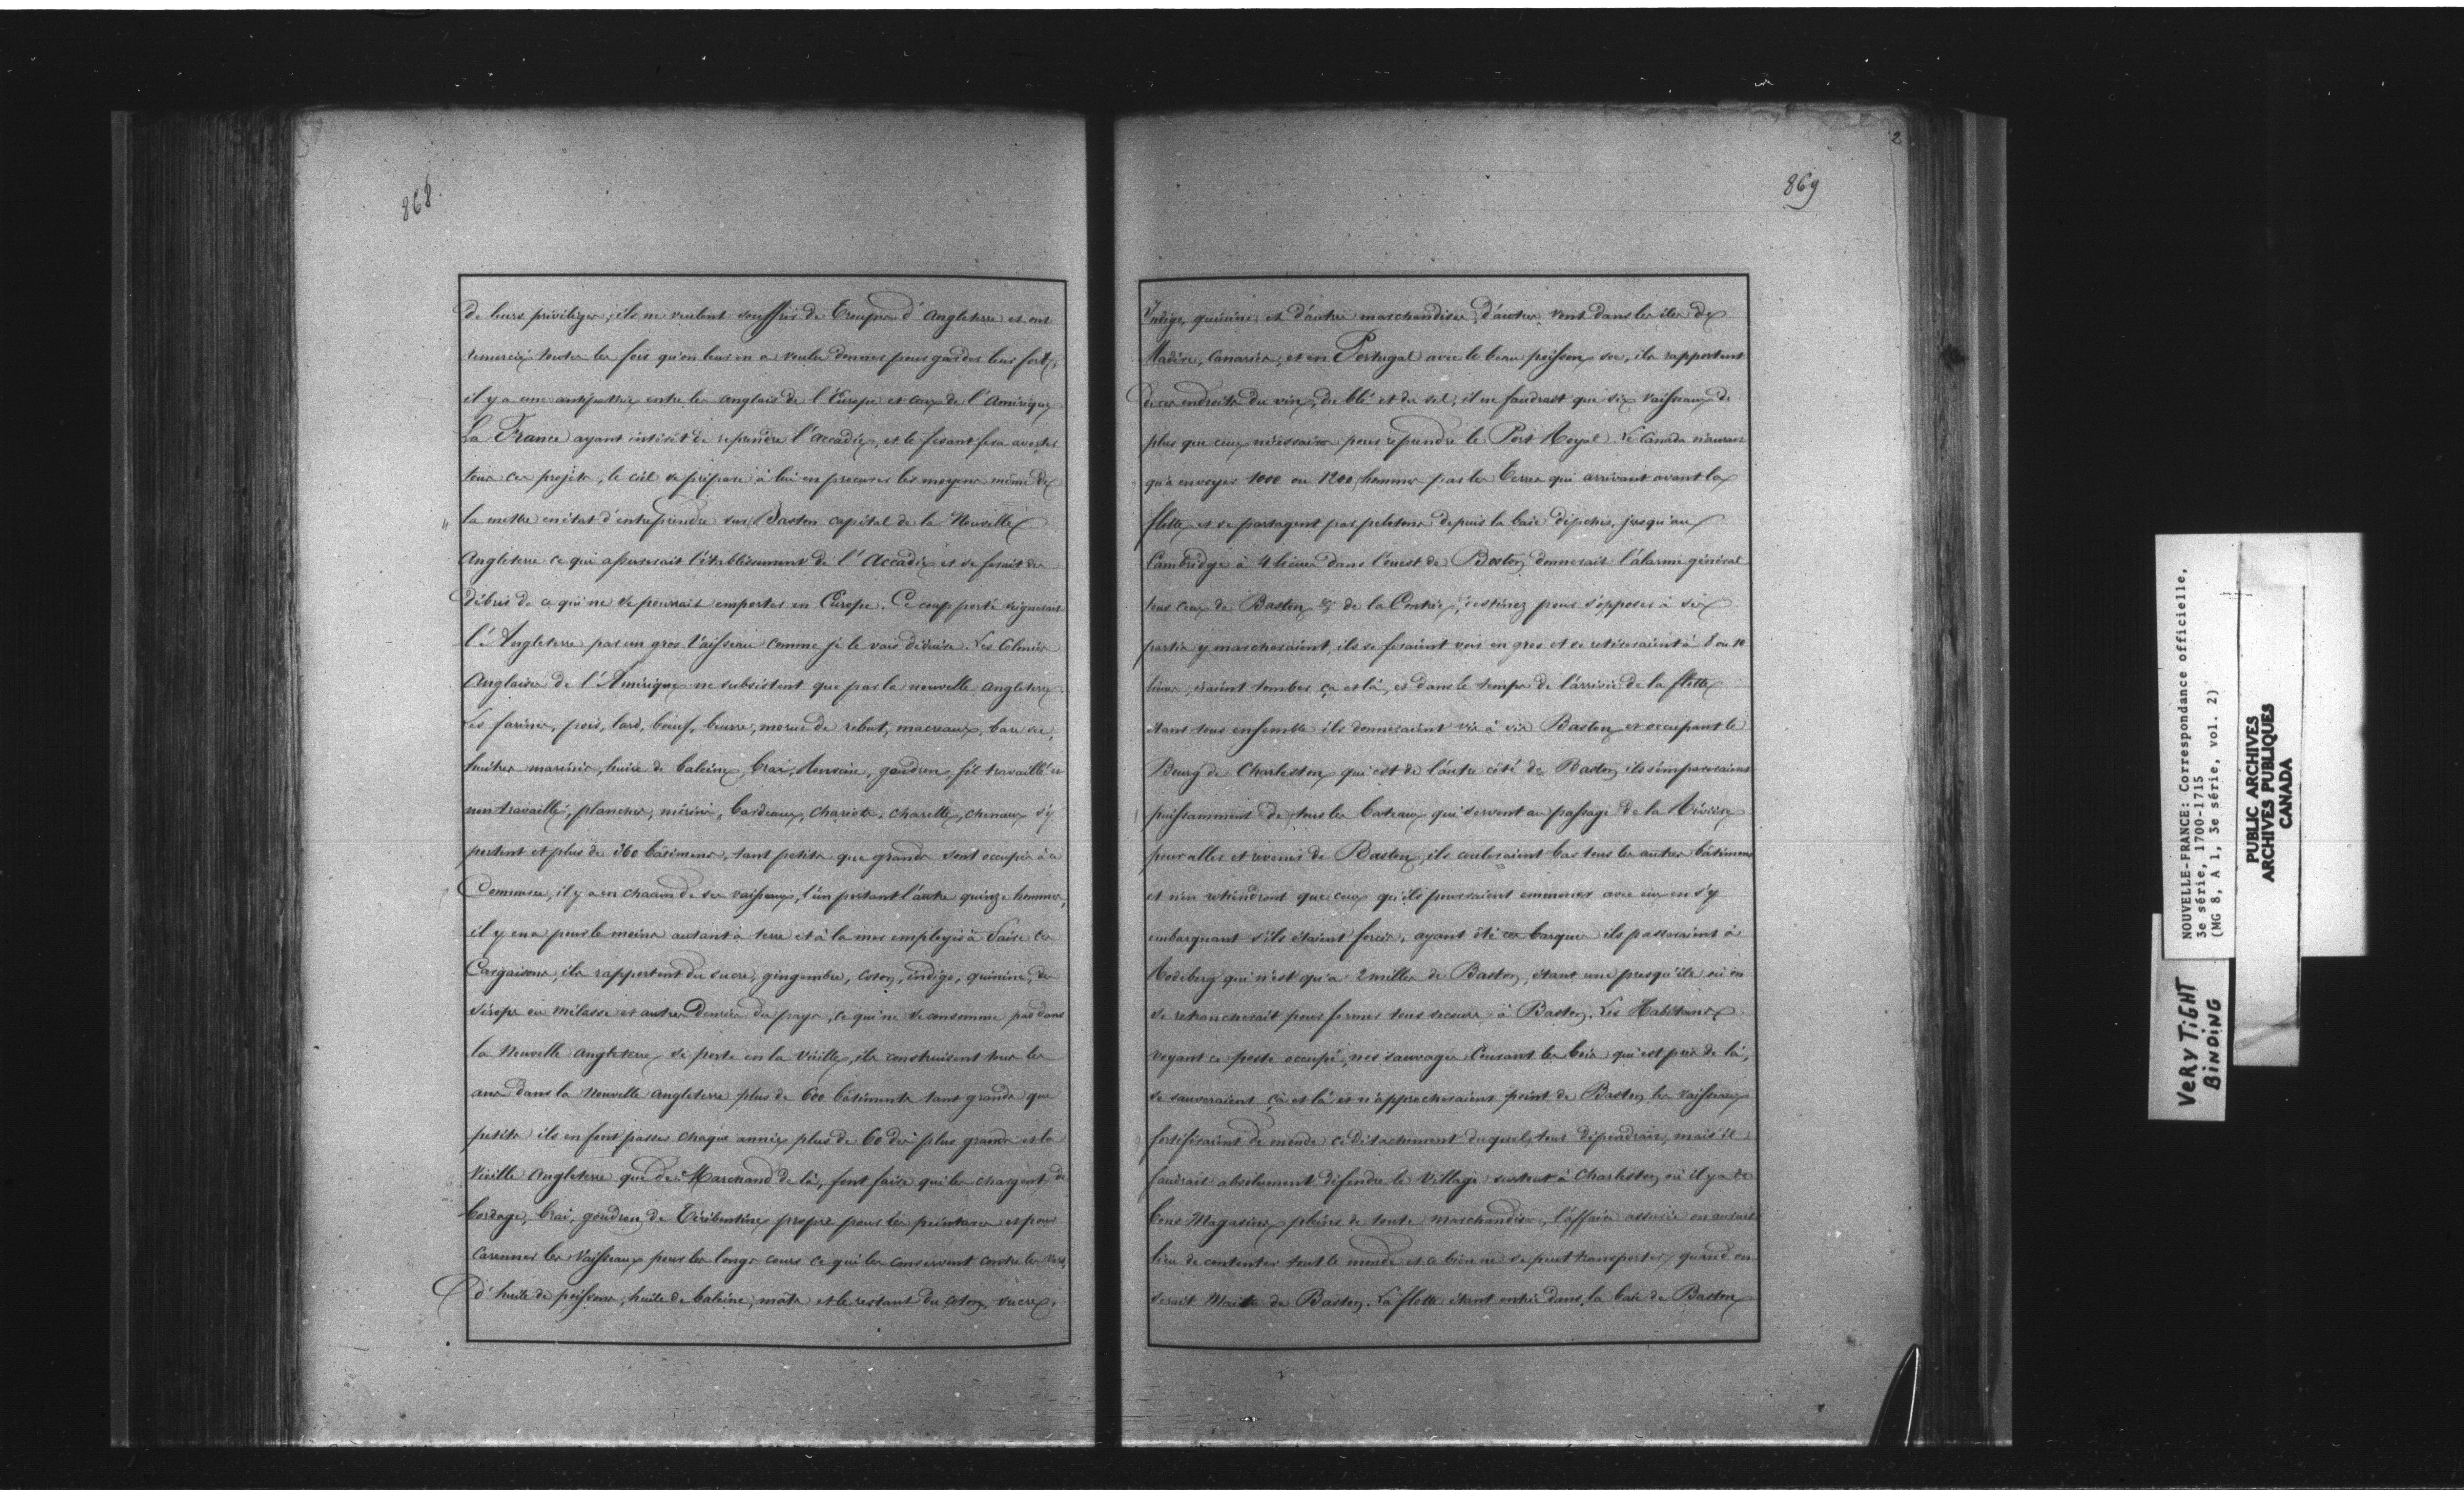 868
de leurs privilèges, ils ne veulent souffrir de Troupes d'Angleterre et ont
remercié toutes les fois qu'on leur en a voulu donner pour garder leur forts,
il y a une antipathie entre les anglais de l'Europe et ceux de l'Amérique
La France ayant intérêt de reprendre l'accadie, et le fesant fera avorter
tous ces projets, le ciel se prépare à lui en procurer les moyens même de
la mettre en état d'entreprendre sur Baston capital de la Nouvelle
Angleterre ce qui assurerait l'établissement de l'Accadie et se ferait des
débris de ce qui ne se pourrait emporter en Europe. Ce coup porté
l'Angleterre par un gros Vaisseau comme je le vais déduire. Les Colonies
Anglaises de l'Amérique ne subsistent que par la nouvelle angleterre.
Les farines, pois, lard, boeuf, beurre, morue de rebut, macreaux,
huitres marinés, huile de baleine, brai, goudron, fil travaillé et
non travaillé, planches, mérins, bardeaux, chariots, charette, chevaux s'y
portent et plus de 360 bâtimens, tant petits que grands sont occupés à ce
Commerce, il y a en chacun de ses vaisseaux, l'un portant l'autre quinze hommes,
il y en a pour le moins autant à terre et à la mer employés à faire ces
Cargaisons, ils rapportent du sucre, gingembre, coton, indigo, quinine, du
sirope ou mélasse et autres denrées du pays, ce qui ne se consomme pas dans
la Nouvelle angleterre se porte en la Vieille, ils construisent tous les
ans dans la Nouvelle angleterre plus de 600 bâtiments tant grands que
petits ils en font passer chaque année plus de 60 des plus grands et la
Vieille angleterre que des Marchand de là, font faire qui les chargent de
bordage, brai, goudron, de Térébentine propre pour les peintures et pour
carenner les Vaisseaux pour les longs cours ce qui les conservent contre les vers,
d'huile de poissons, huile de baleine, mâts et le restant du coton, sucre,
2
869
Indigo, quinine et d'autre marchandises, d'autres vont dans les îles de
Madère, Canaries, et en Portugal avec le beau poisson sec, ils rapportent
de ces endroits du vin, du blé et du sel, il ne faudrait que six vaisseaux de
plus que ceux nécessaires pour reprendre le Port Royal. Le Canada n'aurait
qu'à envoyer 1000 ou 1200 hommes par les terres qui arrivant avant la
flotte et se partagent par pelotons depuis la baie jusqu'au
Cambridge à 4 lieues dans l'ouest de Boston donnerait l'alarme général
tous ceux de Baston & de la Contrée, pour s'opposer à six
partis y marcheraient, ils se feraient voir en gros et se retireraient à 8 ou 10
lieues, iraient tomber ça et là, et dans le temps de l'arrivée de la flotte
étant tous ensemble ils donneraient vis à vis Baston et occupant le
Bourg de Charleston qui est de l'autre côté de Baston ils s'empareraient
puissamment de tous les bateaux qui servent au passage de la Rivière
pour aller et revenir de Baston, ils couleraient bas tous les autres bâtimens
et n'en retiendront que ceux qu'ils pourraient emmener avec eux en s'y
embarquant s'ils étaient forcés, ayant ôté ces barques ils passeraient à
Rodeberg qui n'est qu'à 2 milles de Baston, étant une presqu'île où on
se retrancherait pour fermer tous secours à Baston. Les Habitans
voyant ce poste occupé, nos sauvages Courant les bois qui est près de là,
se sauveraient çà et là et n'approcheraient point de Baston les vaisseaux
fortifieraient de monde ce détachement duquel tout dépendrait, mais il
faudrait absolument défendre le Village surtout à Charleston où il y a de
bons Magasins pleins de toute marchandises, l'affaire assurée on aurait
lieu de contenter tout le monde et ce bien ne se peut transporter, quand on
serait Maitre de Baston. La flotte étant entrée dans la baie de Baston
NOUVELLE-FRANCE: Correspondance officielle,
3e série, 1700-1715
(MG 8, A 1, 3e série, vol. 2)
PUBLIC ARCHIVES
ARCHIVES PUBLIQUES
CANADA
VERY TIGHT
BINDING